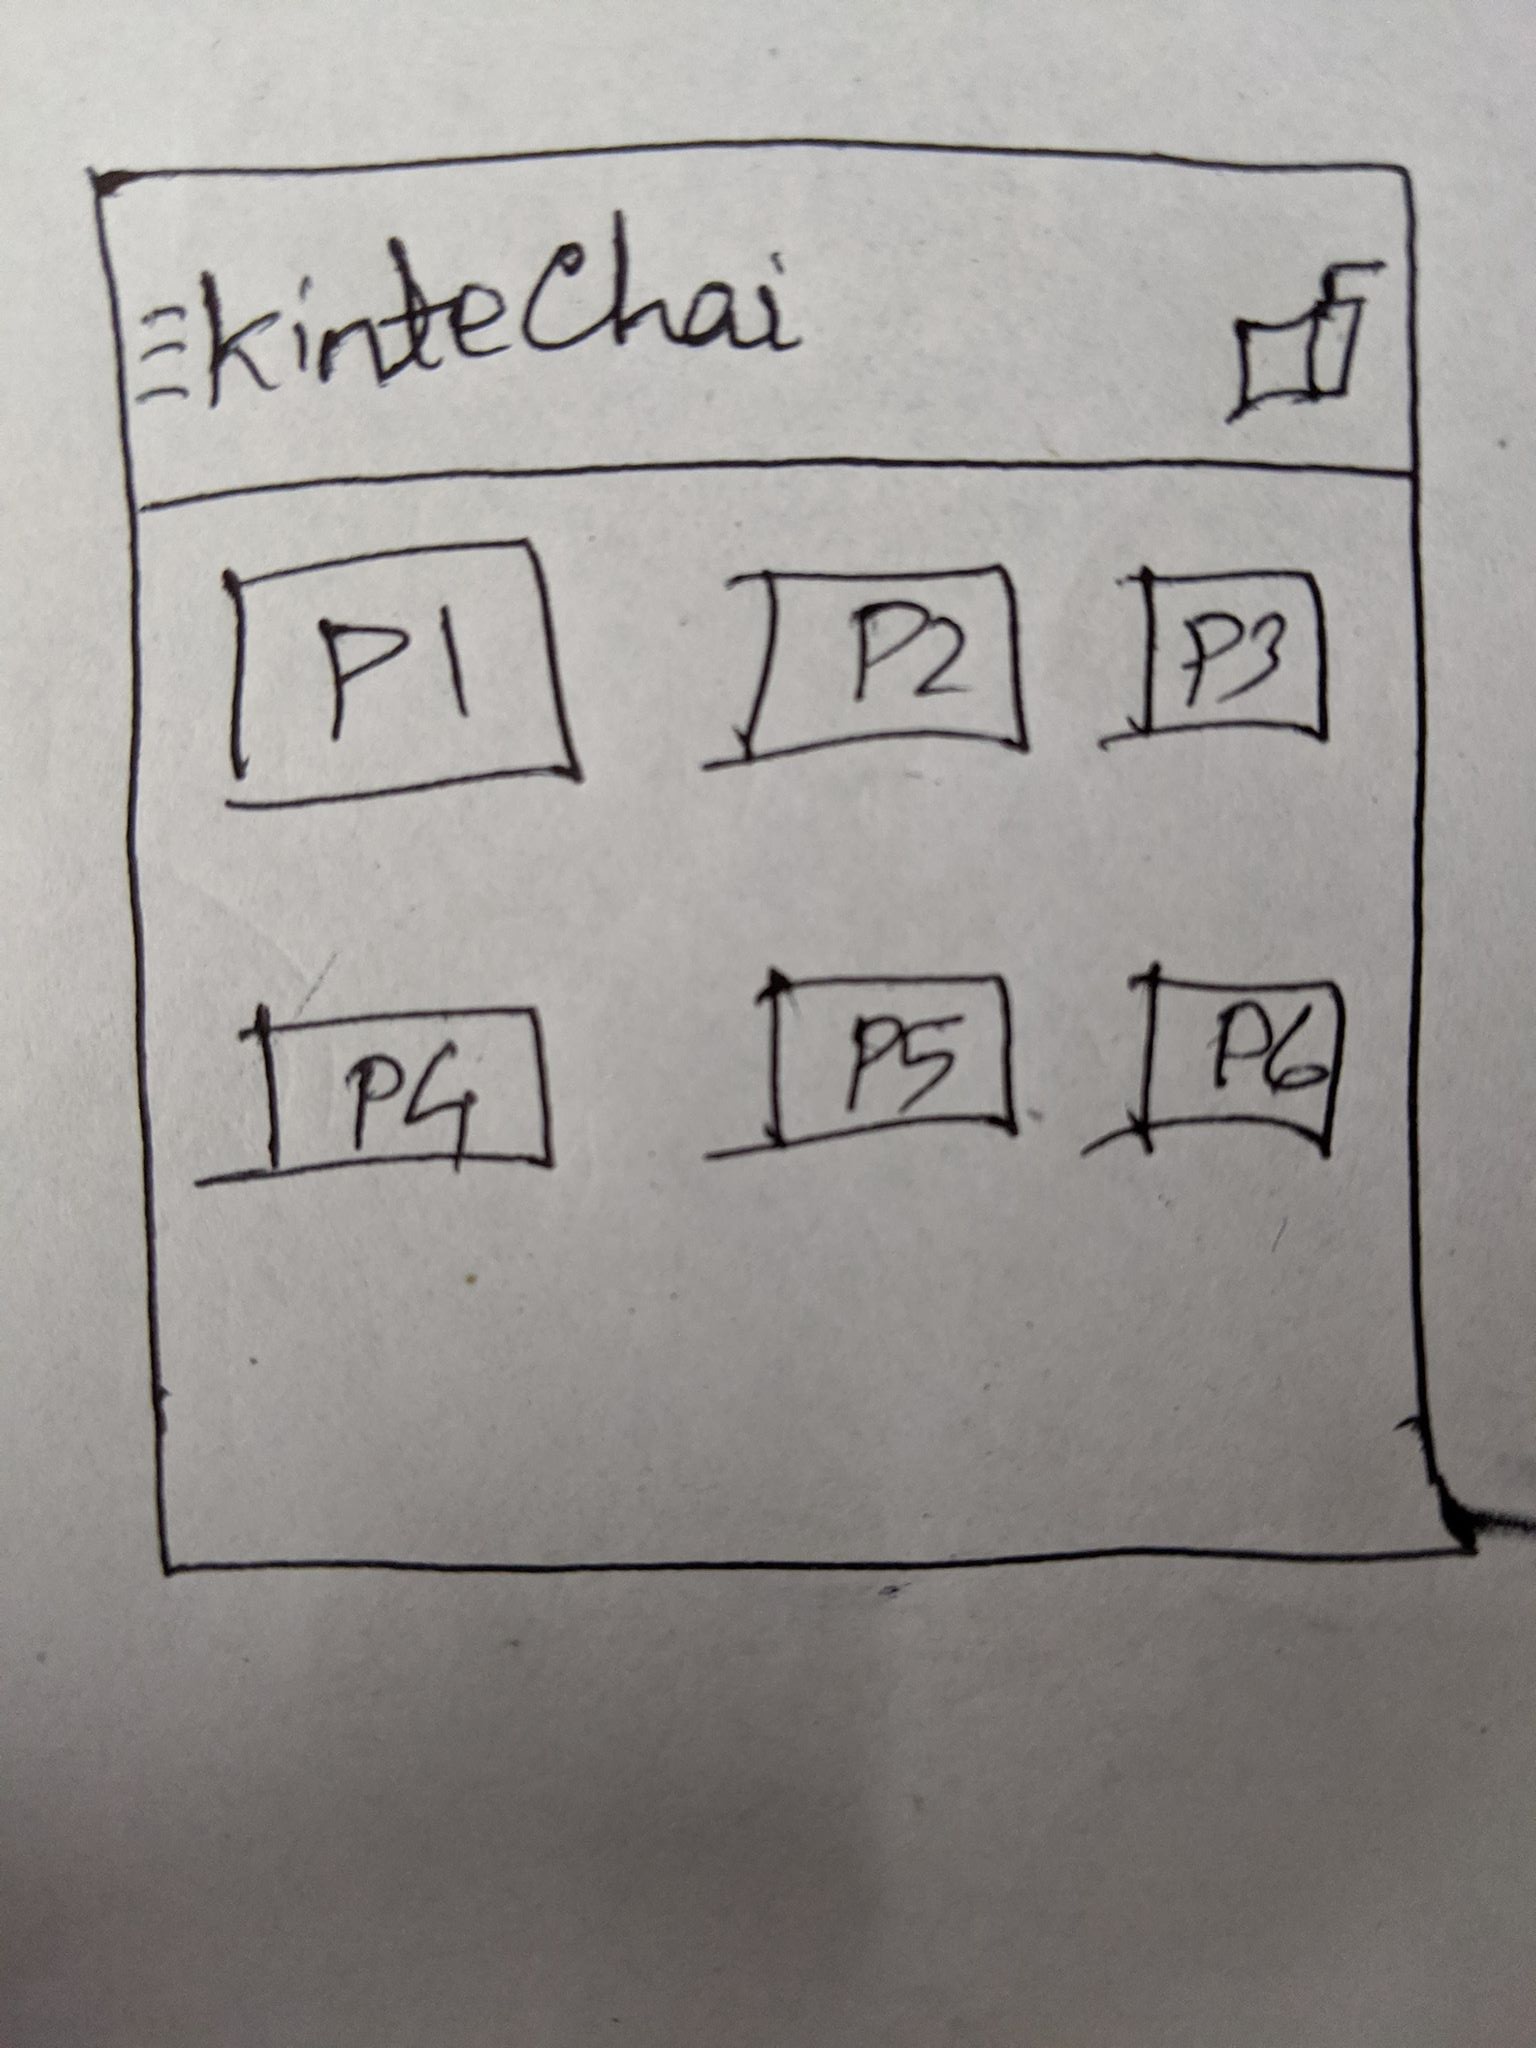 kinteChai
P1 P2 P3
P4 P5 P6